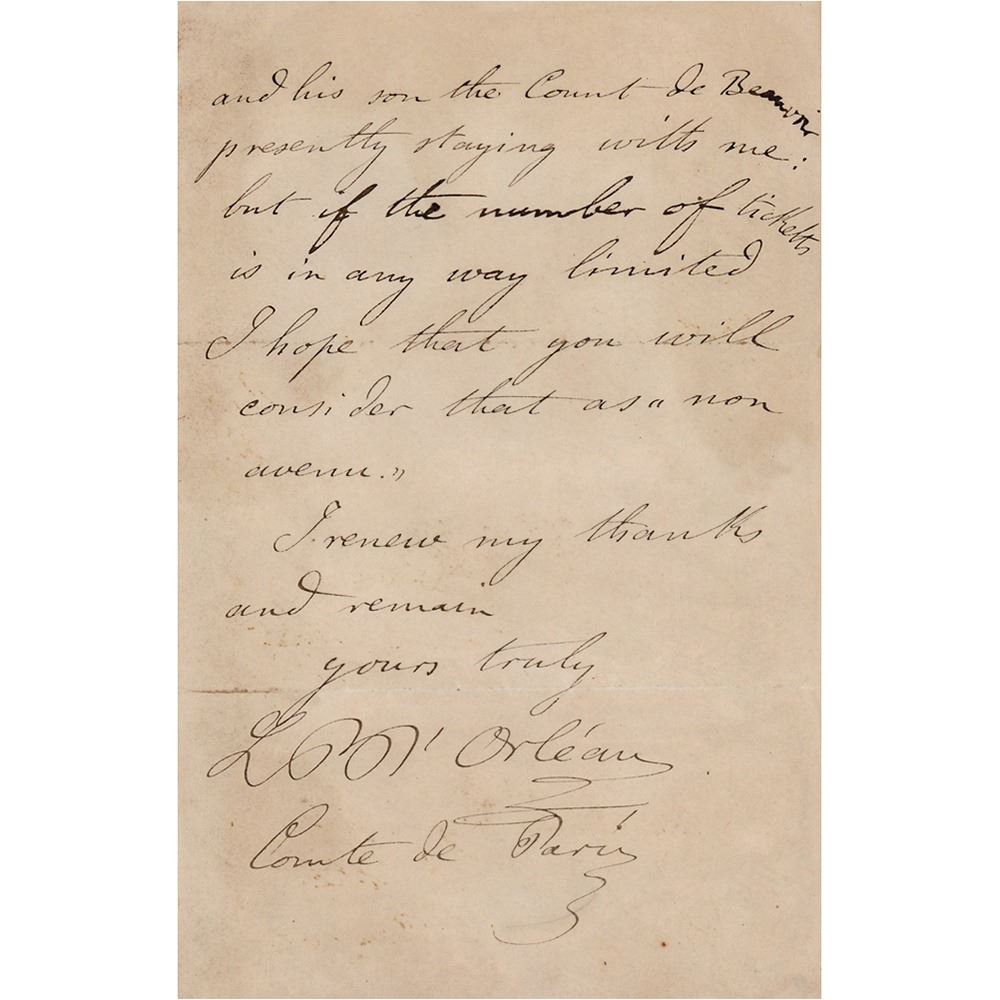 and his son the Count de Beauvoir
presently staying with me:
but if the number of ticketts
is in any way limited
I hope that you will
consider that as "non
avenu."
I renew my thanks
and remain
yours truly
L P d'Orléans
Comte de Paris